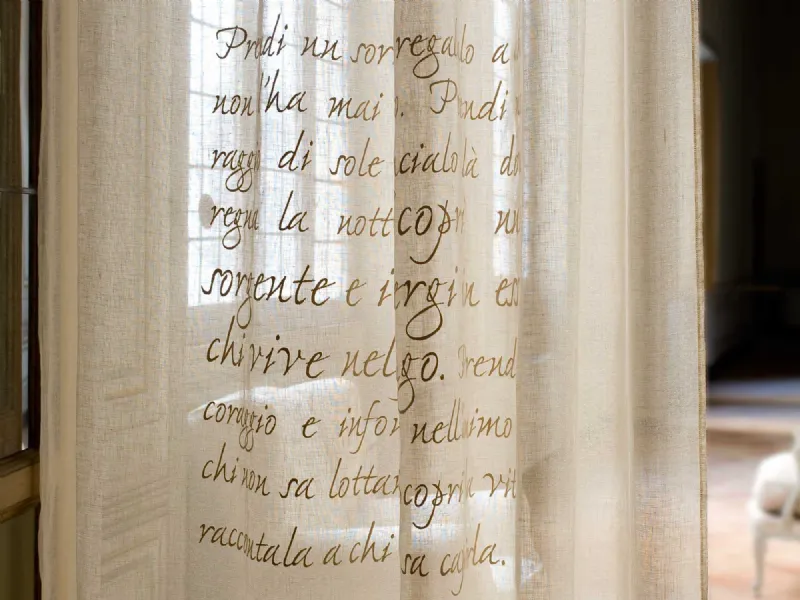 Prendi un sorregalo a
non l'ha mai . Prendi
raggo di sole cialo là do
regna la nott copri un
sorgente e irgin es
chi vive nelgo. Prend
coraggio e infor nell'imo
chi non sa lottar copri vit
raccontala a chi sa capirla.